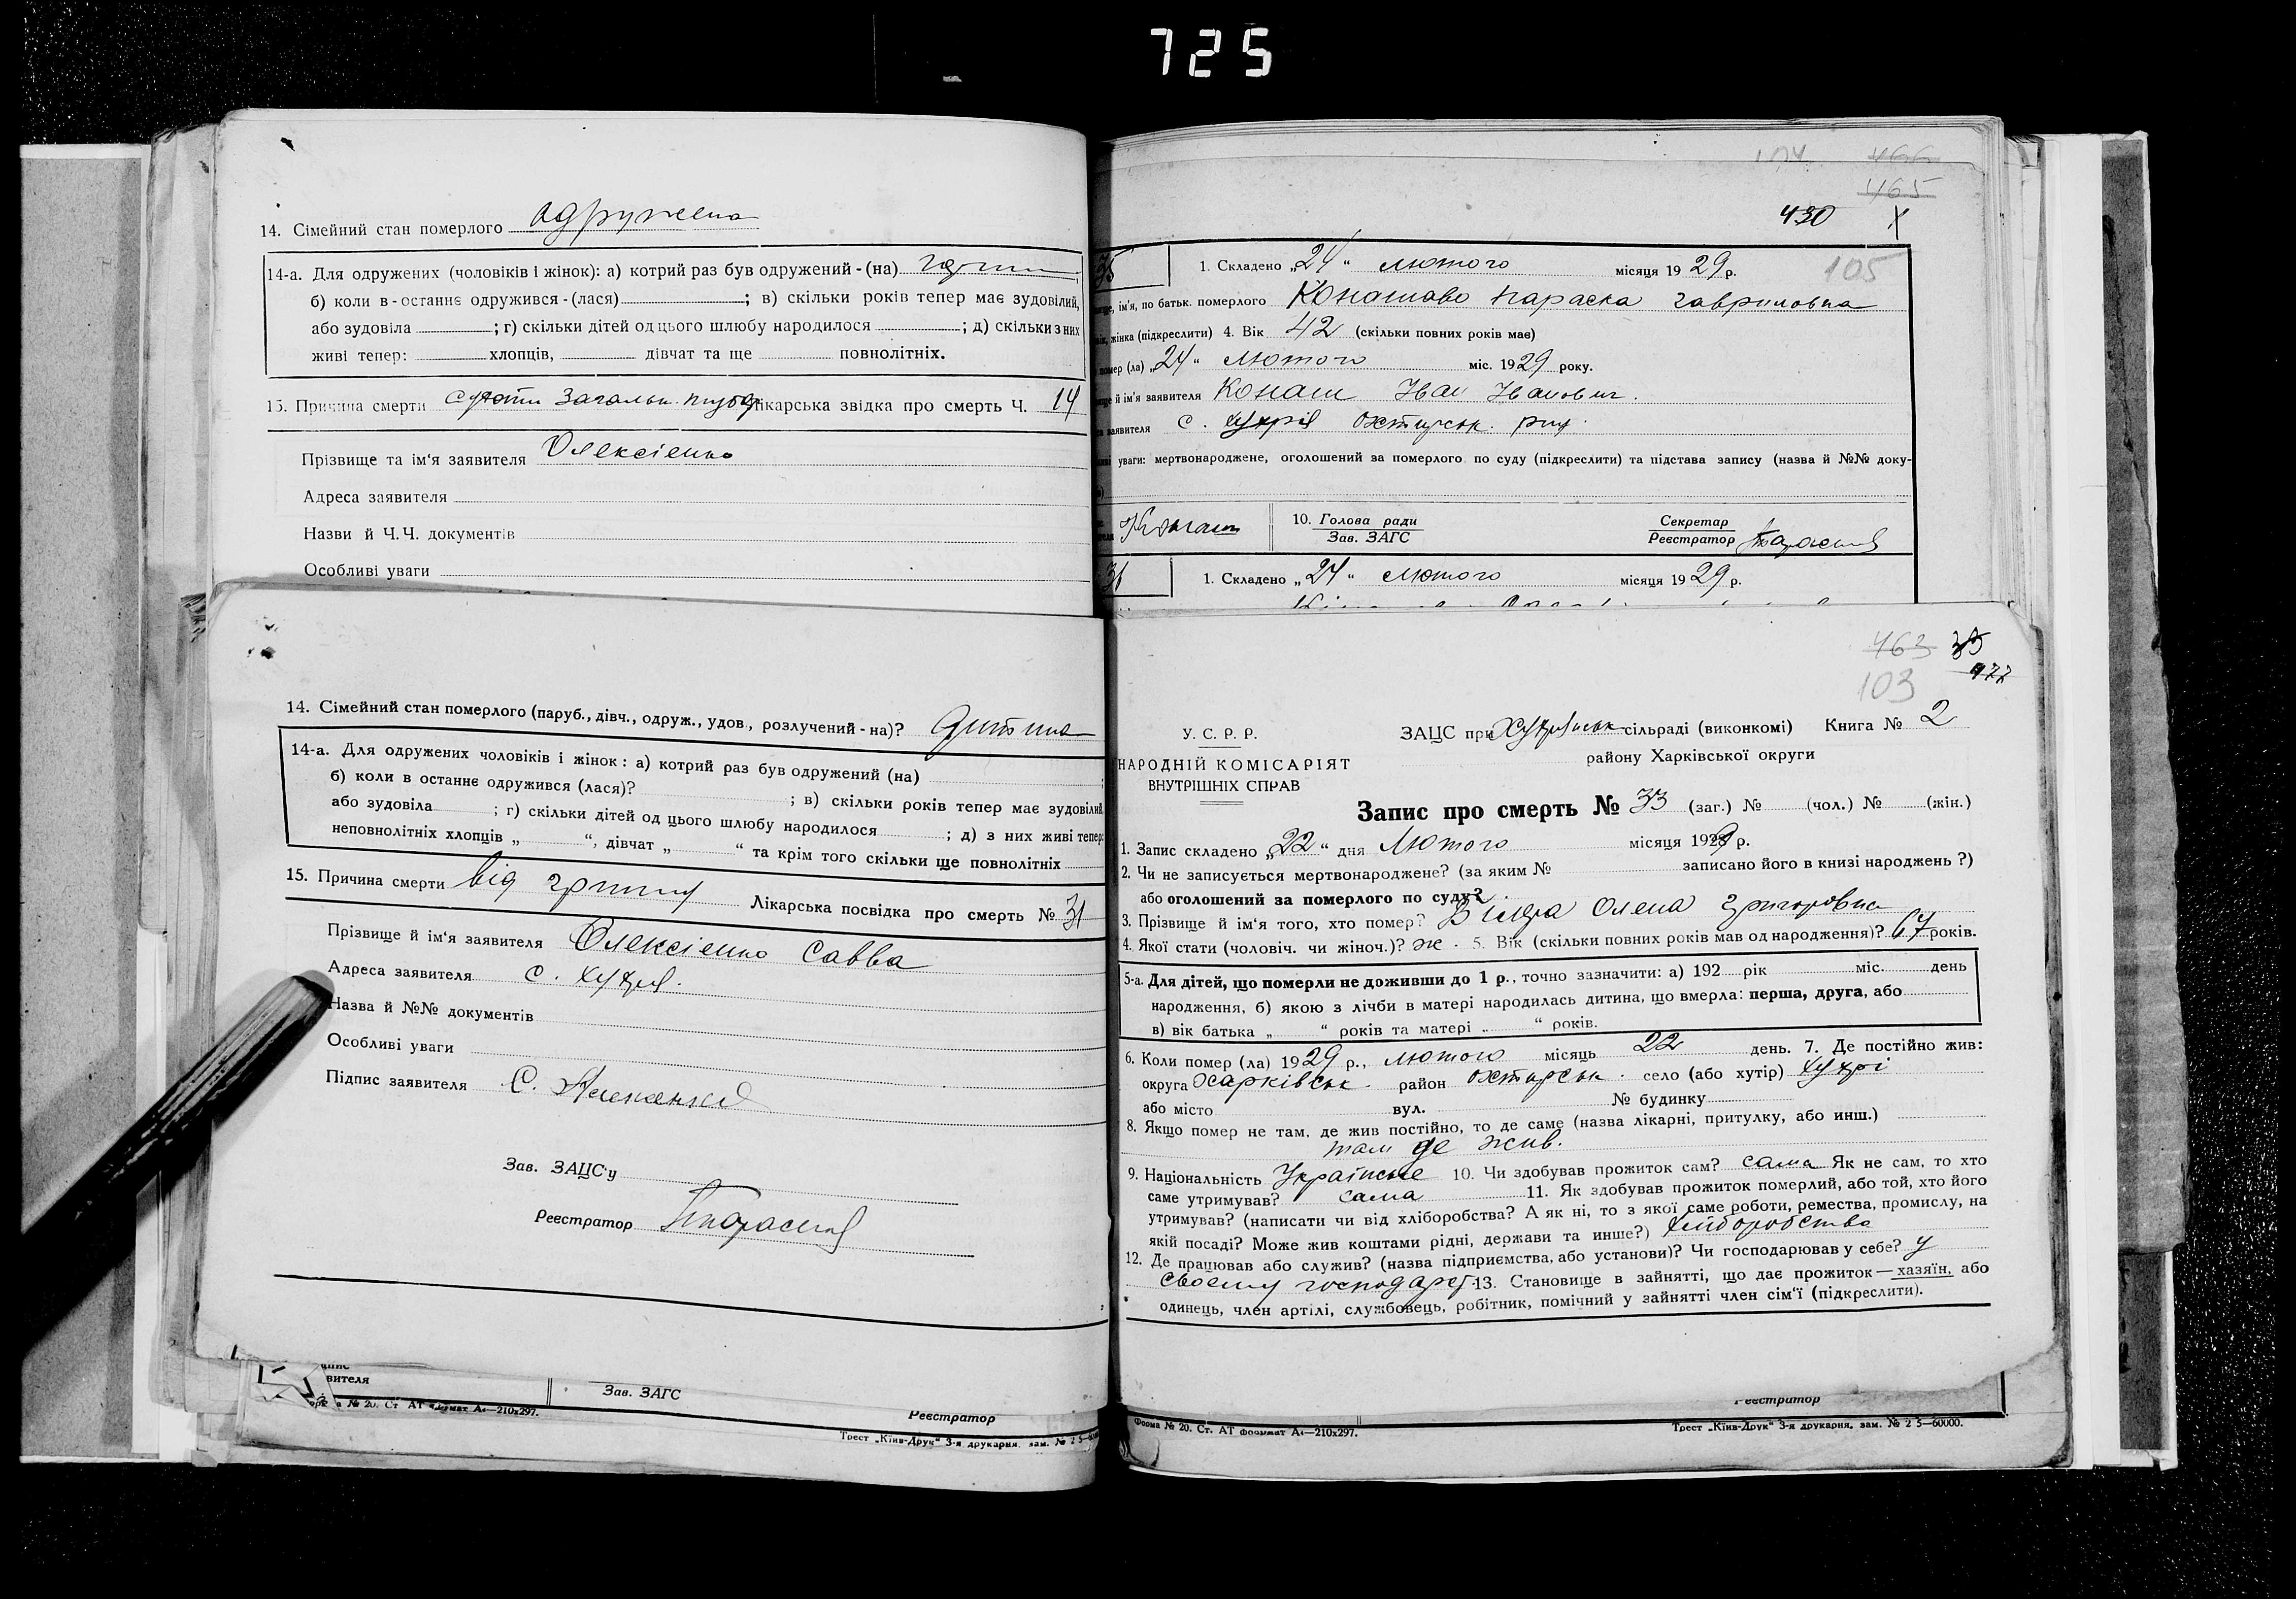 725
14. Сімейний стан померлого одружена
14-а. Для одружених (чоловіків і жінок): а) котрий раз був одружений - (на)
б) коли в - останнє одружився - (лася) ; в) скільки років тепер має зудовілий,
або зудовіла ; г) скільки дітей од цього шлюбу народилося ; д) скільки з них
живі тепер: хлопців, дівчат та ще повнолітніх.
15. Причина смерти лікарська звідка про смерть Ч. 14
Прізвище та ім'я заявителя Олексієнко
Адреса заявителя
Назви й Ч.Ч. документів
Особливі уваги
14. Сімейний стан померлого (паруб., дівч., одруж., удов., розлучений - на)? дитина
14-а. Для одружених чоловіків і жінок: а) котрий раз був одружений (на) ;
б) коли в останнє одружився (лася)? ; в) скільки років тепер має зудовілий
або зудовіла ; г) скільки дітей од цього шлюбу народилося ; д) з них живі тепер:
неповнолітніх хлопців „ “, дівчат „ “ та крім того скільки ще повнолітніх
15. Причина смерти від грипу Лікарська посвідка про смерть № 31
Прізвище й ім'я заявителя Олексієнко Савва
Адреса заявителя с. Хухря.
Назва й №№ документів
Особливі уваги
Підпис заявителя С.
Зав. ЗАЦС'у
Реєстратор
вителя
Зав. ЗАГС
Реєстратор
№ 20. Ст. АТ формат А4—210х297.
Трест „Київ-Друк“ 3-я друкарня, зам. № 2 5—
104 466
465
430 X
105
35 1. Складено „24“ лютого місяця 1929 р.
ім'я, по батьк. померлого Конашова Параска Гавриловна
жінка (підкреслити) 4. Вік 42 (скільки повних років має)
помер (ла) „24“ лютого міс. 1929 року.
й ім'я заявителя Конаш Іван Іванович.
заявителя с. Хухря Охтирськ. рай.
уваги: мертвонароджене, оголошений за померлого по суду (підкреслити) та підстава запису (назва й №№ доку-
Конаш 10. Голова ради Секретар
Зав. ЗАГС Реєстратор
1. Складено „24“ лютого місяця 1929 р.
463 33
103
У. С. Р. Р.
НАРОДНІЙ КОМІСАРІЯТ
ВНУТРІШНІХ СПРАВ
ЗАЦС при Хухрянськ сільраді (виконкомі) Книга № 2
району Харківської округи
Запис про смерть № 33 (заг.) № (чол.) № (жін.)
1. Запис складено „22“ дня Лютого місяця 1929 р.
2. Чи не записується мертвонароджене? (за яким № записано його в книзі народжень?)
або оголошений за померлого по суду?
3. Прізвище й ім'я того, хто помер? Олена Григоровна
4. Якої стати (чоловіч. чи жіноч.)? ж. 5. Вік (скільки повних років мав од народження)? 67 років.
5-а. Для дітей, що померли не доживши до 1 р., точно зазначити: а) 192 рік міс. день
народження, б) якою з лічби в матері народилась дитина, що вмерла: перша, друга, або
в) вік батька „ “ років та матері „ “ років.
6. Коли помер (ла) 1929 р., лютого місяць 22 день. 7. Де постійно жив:
округа Харківськ. район Охтирськ. село (або хутір) Хухрі
або місто вул. № будинку
8. Якщо помер не там, де жив постійно, то де саме (назва лікарні, притулку, або инш.)
там де жив.
9. Національність Українське 10. Чи здобував прожиток сам? сама Як не сам, то хто
саме утримував? сама 11. Як здобував прожиток померлий, або той, хто його
утримував? (написати чи від хліборобства? А як ні, то з якої саме роботи, ремества, промислу, на
якій посаді? Може жив коштами рідні, держави та инше?) хліборобства
12. Де працював або служив? (назва підприємства, або установи)? Чи господарював у себе? у
своєму господарст. 13. Становище в зайнятті, що дає прожиток — хазяїн, або
одинець, член артілі, службовець, робітник, помічний у зайнятті член сім'ї (підкреслити).
Реєстратор
Форма № 20. Ст. АТ формат А4—210х297.
Трест „Київ-Друк“ 3-я друкарня, зам. № 2 5—60000.